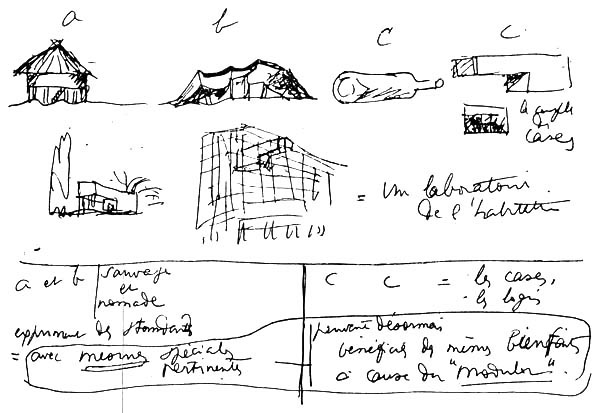 a
b
c
c
cases
= un laboratoire
de l'habitation
a et b
sauvage
et
nomade
expriment des standards
= avec mesures spéciales
pertinentes
c c = les cases,
les logis
peuvent désormais
bénéficier des mêmes bienfaits
à cause du "Modulor".